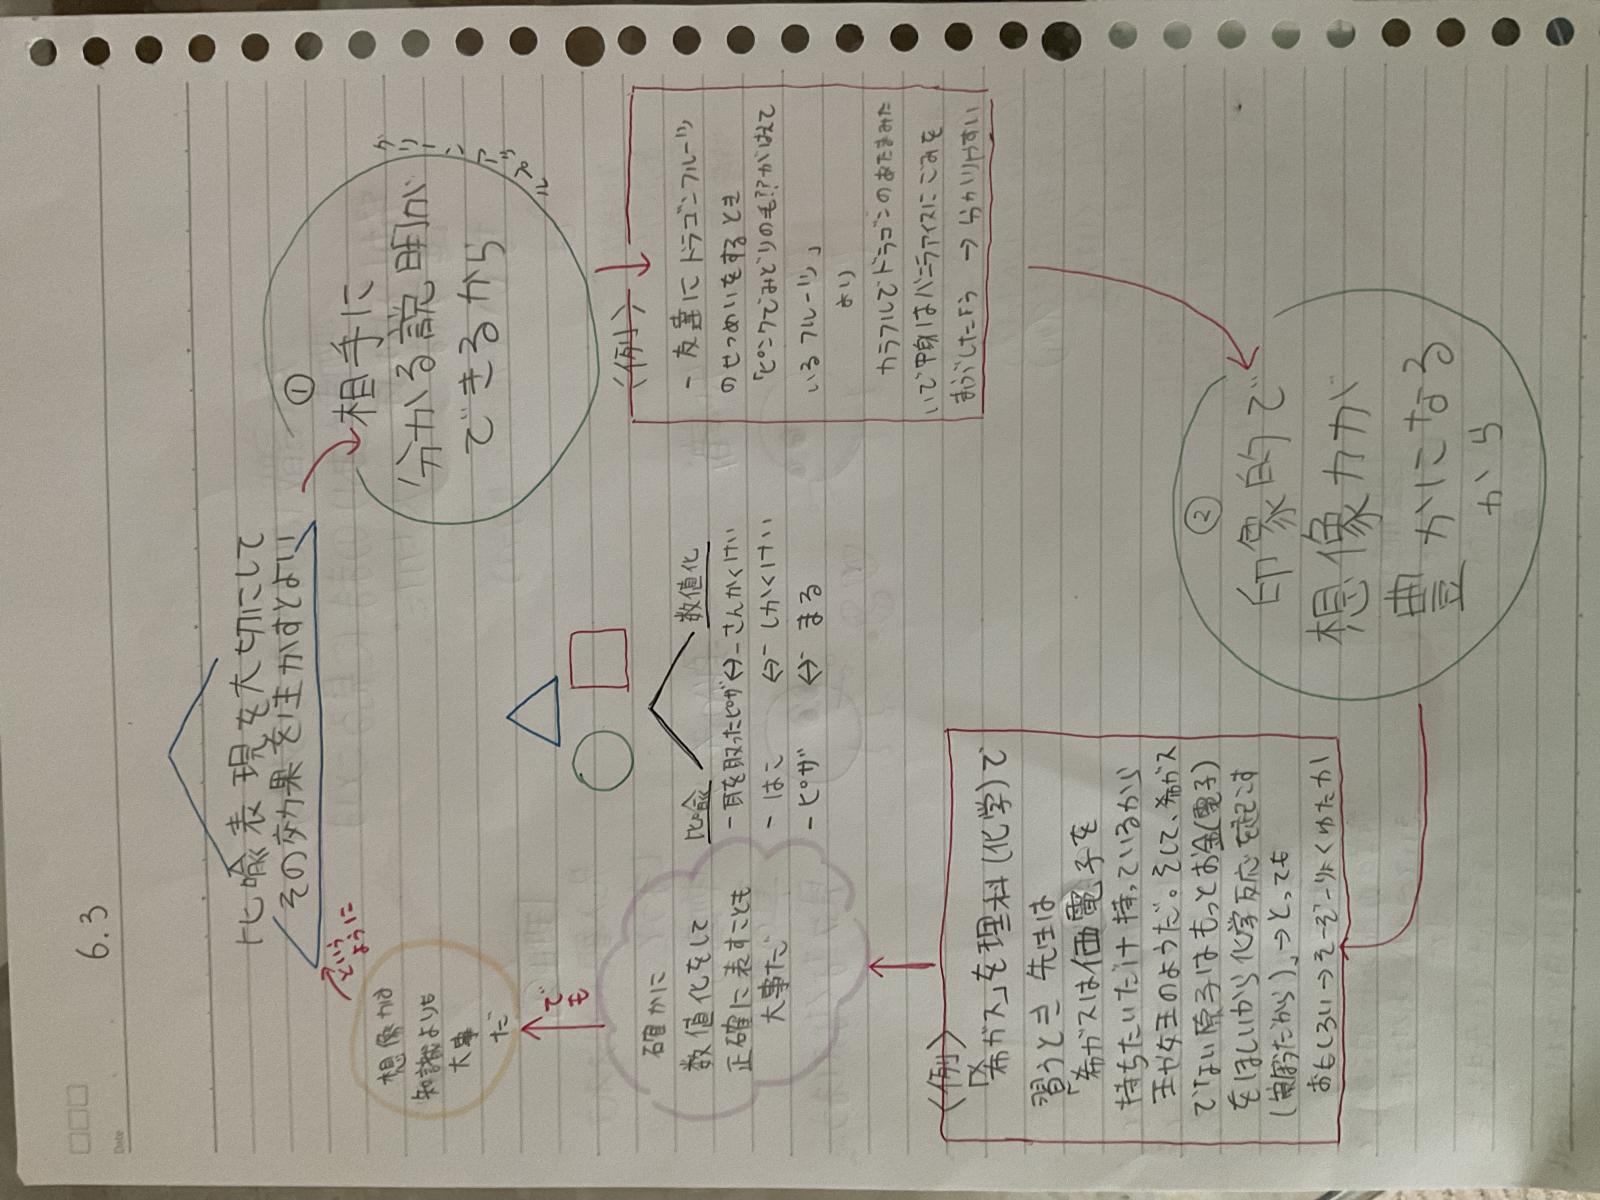 6.3
Date
比喩表現を大切にして
その効果を生かすとよい
①
相手に
分かる説明が
できるから
グリーンアップル
〈例〉
- 友人にドラゴンフルーツ
のせつめいをするとき
「ピンクでみどりのも??がはえて
いるフルーツ」
より
カラフルでドラゴンのあたまみた
いで中身はバニラアイスにごみを
まぶしたよう → 分かりやすい
②
印象的で
想像力が
豊かになる
から
〈例〉
「希ガス」を理科(化学)で
習うとき 先生は
「希ガスは価電子を
持ちたいだけ持っているから
王や女王のようだ。そして、希ガス
でない原子はもっとお金(電子)
をほしいから化学反応を起こす
(貧ぼうだから)」→とっても
おもしろい→そーぞーりょくゆたか
確かに
数値化をして
正確に表すことも
大事だ
でも
想像力は
知識よりも
大事
だ
というように
比喩
- 耳を取ったピザ
- はこ
- ピザ
数値化
⇔ - さんかくけい
⇔ - しかくけい
⇔ - まる